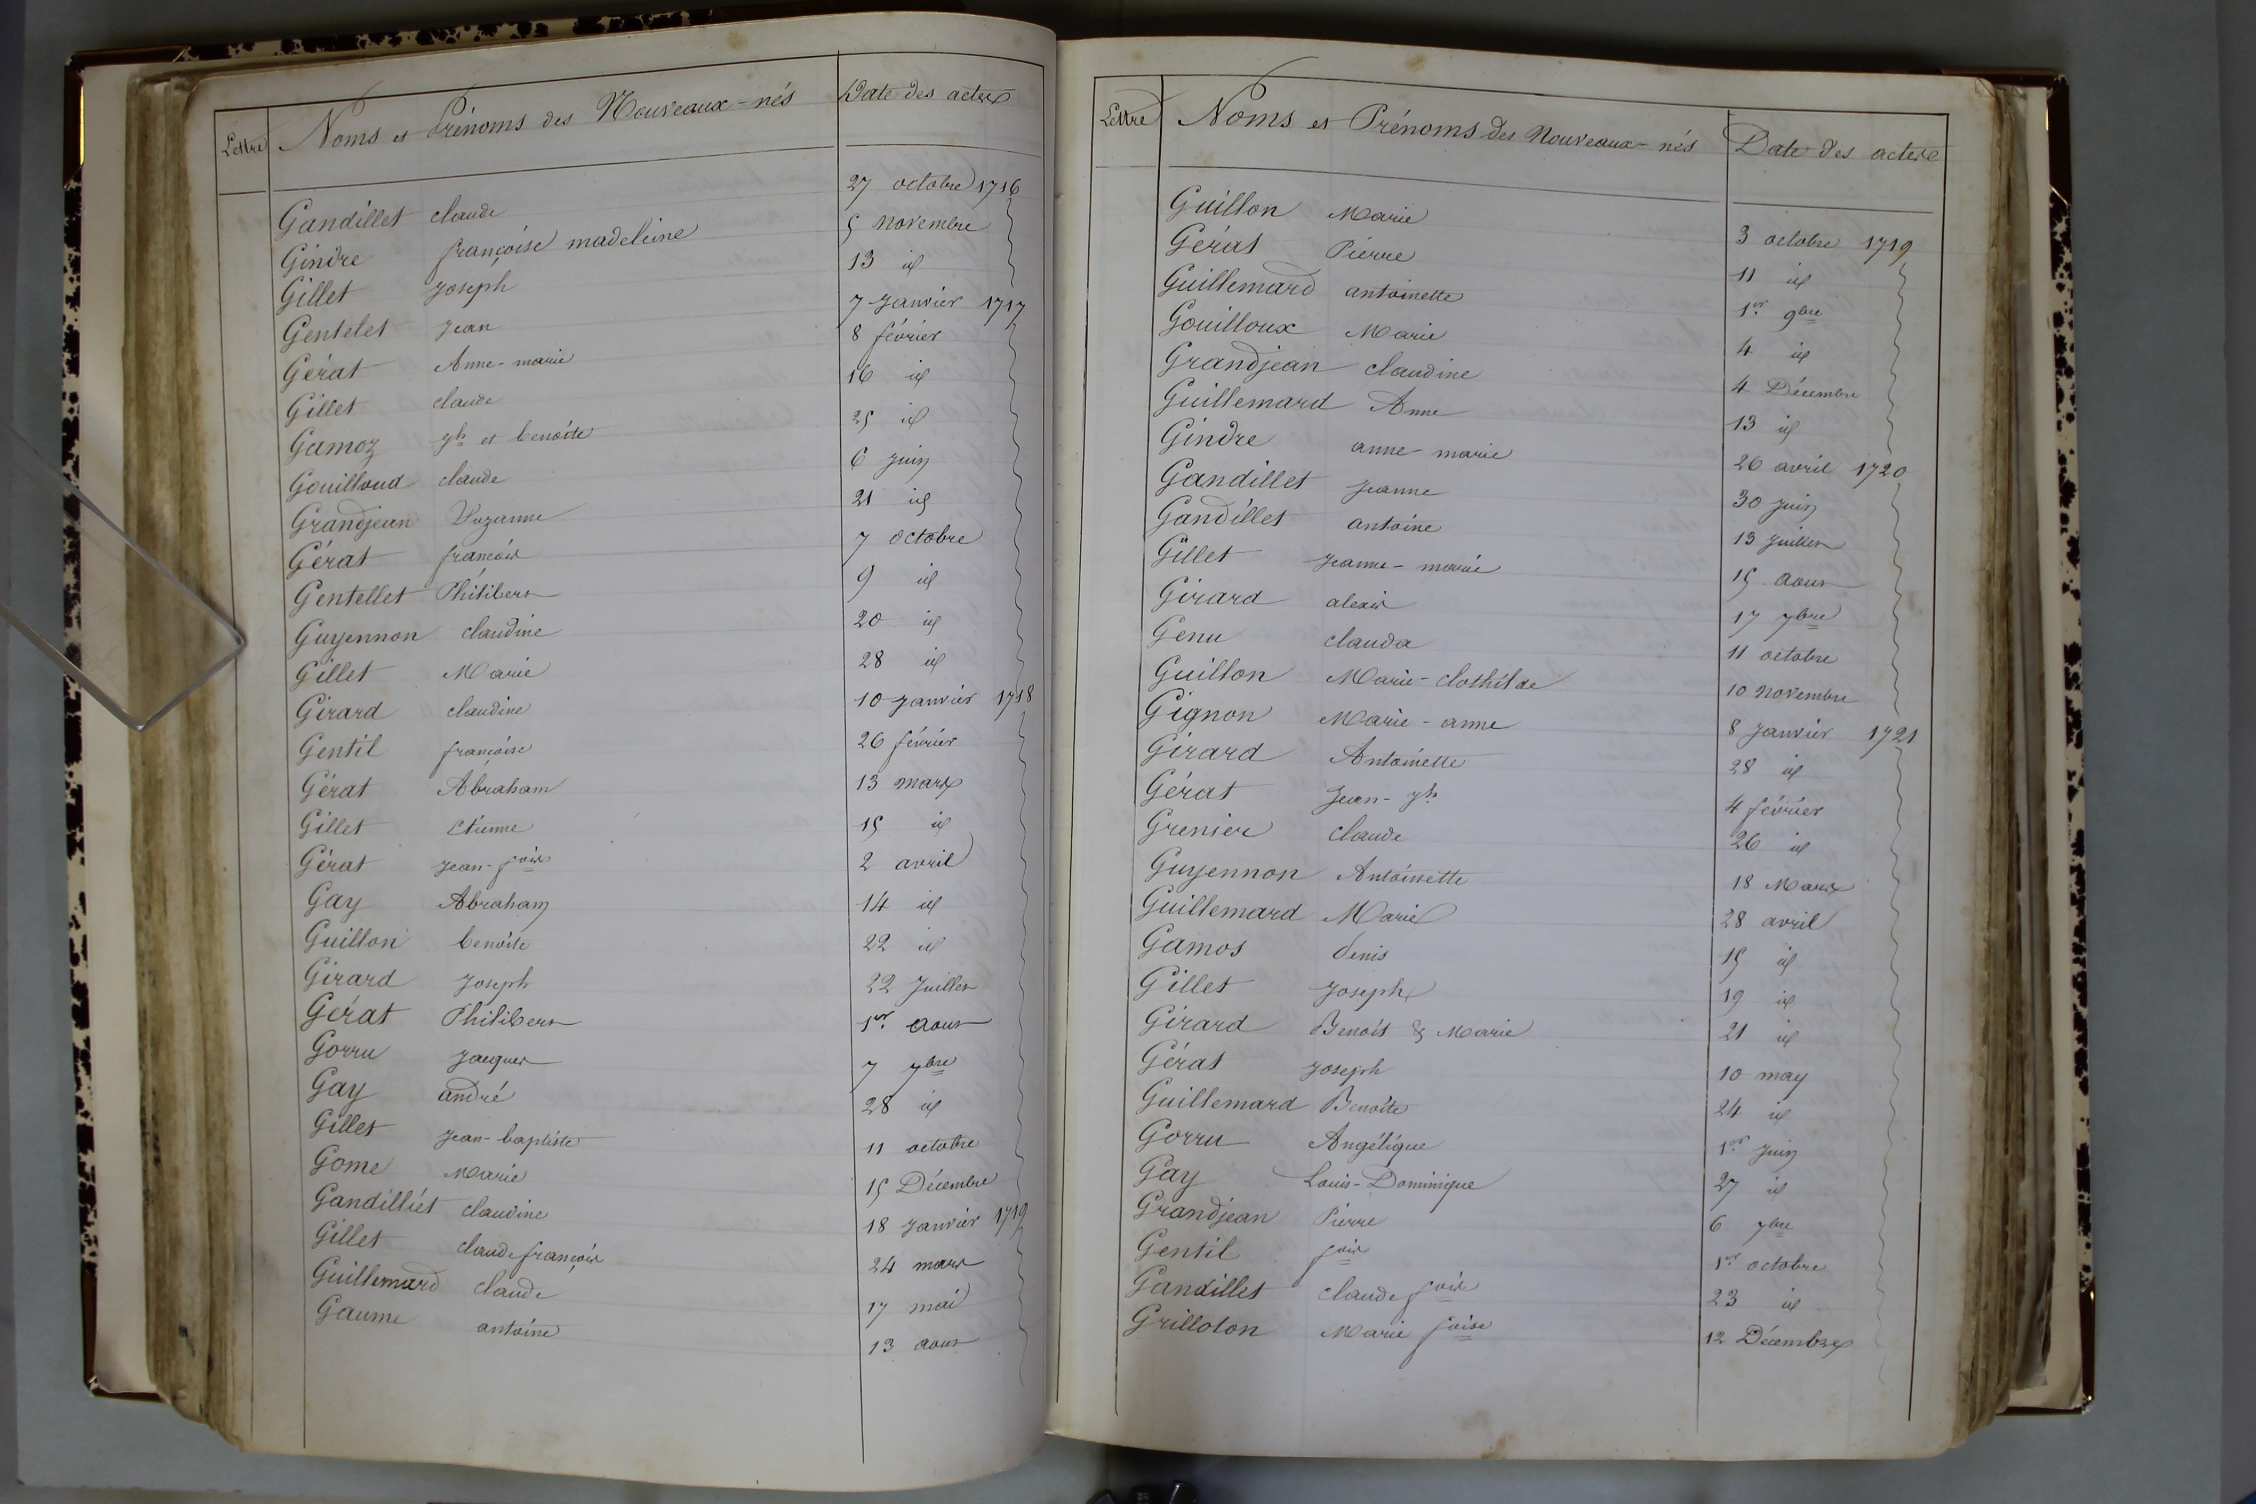 Lettre Noms et Prénoms des Nouveaux-nés Date des actes
Gandillet claude 27 octobre 1716
Gindre françoise madeleine 5 novembre
Gillet Joseph 13 id
Gentelet Jean 7 Janvier 1717
Gérat Anne-marie 8 février
Gillet claude 16 id
Gamoz jh et benoite 25 id
Gouilloud claude 6 Juin
Grandjean Suzanne 21 id
Gérat françois 7 octobre
Gentellet Philibert 9 id
Guyennon claudine 20 id
Gillet Marie 28 id
Girard claudine 10 Janvier 1718
Gentil françoise 26 février
Gérat Abraham 13 mars
Gillet Etienne 15 id
Gérat Jean-fois 2 avril
Gay Abraham 14 id
Guillon benoite 22 id
Girard Joseph 22 Juillet
Gérat Philibert 1er aout
Gorru Jacques 7 7bre
Gay andré 28 id
Gillet Jean-baptiste 11 octobre
Gome Marie 15 Décembre
Gandilliet claudine 18 Janvier 1719
Gillet claude françois 24 mars
Guillemard claude 17 mai
Gaume antoine 13 aout
Lettre Noms et Prénoms des Nouveaux-nés Date des actes
Guillon Marie 3 octobre 1719
Gérat Pierre 11 id
Guillemard antoinette 1er 9bre
Gouilloux Marie 4 id
Grandjean claudine 4 Décembre
Guillemard Anne 13 id
Gindre anne-marie 26 avril 1720
Gandillet Jeanne 30 Juin
Gandillet antoine 13 Juillet
Gillet Jeanne-marie 15 aout
Girard alexis 17 7bre
Genu clauda 11 octobre
Guillon Marie-clothilde 10 novembre
Gignon Marie-anne 8 Janvier 1721
Girard Antoinette 28 id
Gérat Jean-jh 4 février
Grenier claude 26 id
Guyennon Antoinette 18 Mars
Guillemard Marie 28 avril
Gamos denis 15 id
Gillet Joseph 19 id
Girard Benoit & Marie 21 id
Gérat Joseph 10 may
Guillemard Benoite 24 id
Gorru Angélique 1er Juin
Gay Louis-Dominique 27 id
Grandjean Pierre 6 7bre
Gentil fois 1er octobre
Gandillet claude fois 23 id
Grilloton Marie foise 12 Décembre